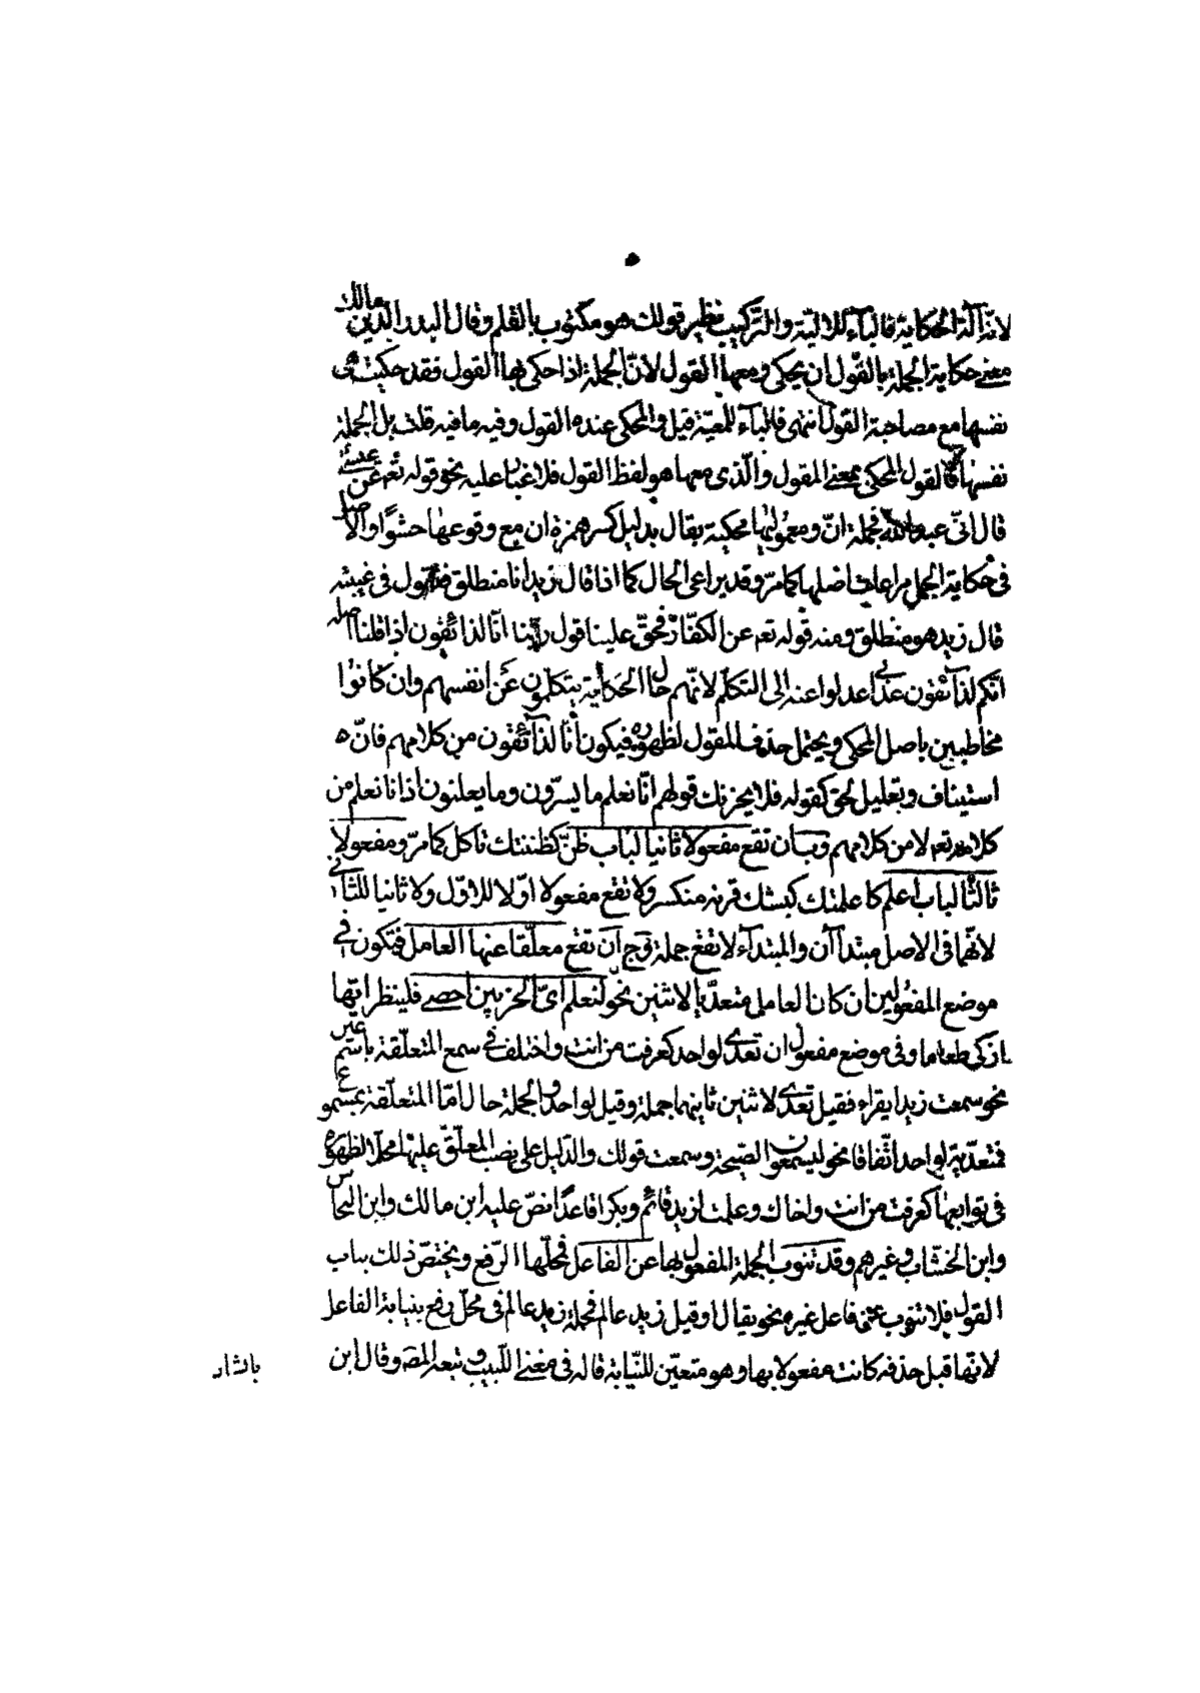 لانّه آلة الحكاية فالباء للاليّة والتركيب نظير قولك هو مكتوب بالقلم وقال البدر الدين مالك
معنى حكاية الجملة بالقول ان يحكى ومعها القول لانّ الجملة اذا حكى بها القول فقد حكيت هى
نفسها مع مصاحبة القول انتهى فالباء للمعيّة قيل والمحكى عنده القول وفيه ما فيه قلت بل الجملة
نفسها فالقول المحكى بمعنى المقول والّذى معها هو لفظ القول فلا غبار عليه نحو قوله تعه عن عيسى
قال انّى عبد الله فجملة انّ ومعموليها محكية بقال بدليل كسر همزة ان مع وقوعها حشوًا والاصل
فى حكاية الجمل مراعات اصلها كما مرّ وقد يراعى الحال كما اذا قال زيد انا منطلق فتقول فى غيبته
قال زيد هو منطلق ومنه قوله تعه عن الكفّار فحقّ علينا قول ربّنا انّا لذائقون اذ قلنا اصله
انّكم لذائقون عذابى عدلوا عنه الى التكلّم لانّهم حال الحكاية يتكلمون عن انفسهم وان كانوا
مخاطبين باصل المحكى ويحتمل حذف المقول لظهوره فيكون انّا لذائقون من كلامهم فانّه
استيناف وتعليل لحق كقوله فلا يحزنك قولهم انّا نعلم ما يسرّون وما يعلنون اذ انا نعلم من
كلامه تعه لا من كلامهم وب ان تقع مفعولا ثانيا لباب ظنّ كظننتك تاكل كما مرّ ومفعولا
ثالثا لباب اعلم كاعلمتك كبشك قرنه منكسر ولا تقع مفعولا اوّلا للاوّل ولا ثانيا للثانى
لانّهما فى الاصل مبتدآن والمبتداء لا تقع جملة وج ان تقع معلّقا عنها العامل فتكون فى
موضع المفعولين ان كان العامل متعدّيا لاثنين نحو لنعلم اىّ الحزبين احصى فلينظر ايّها
ازكى طعاما وفى موضع مفعول ان تعدّى لواحد كعرفت من انت واختلف فى سمع المتعلّقة باسم عين
نحو سمعت زيدا يقراء فقيل تعدّى لاثنين ثانيهما جملة وقيل لواحد والجملة حال امّا المتعلّقة بمسموع
فمتعدّية لواحد اتّفاقا نحو ليسمعون الصّيحة وسمعت قولك والدّليل على نصب المعلّق عليها محلّا ظهوره
فى توابعها كعرفت من انت واخاك وعلمت لزيد قائم وبكرا قاعدًا نصّ عليه ابن مالك وابن النحاس
وابن الخشّاب وغيرهم وقد تنوب الجملة المفعول بها عن الفاعل فمحلّها الرّفع ويختصّ ذلك بباب
القول فلا تنوب عن فاعل غيره نحو يقال او قيل زيد عالم فجملة زيد عالم فى محلّ رفع بنيابة الفاعل
لانّها قبل حذفه كانت مفعولا بها وهو متعيّن للنّيابة قاله فى مغنى اللّبيب وتبعه المصَ وقال ابن